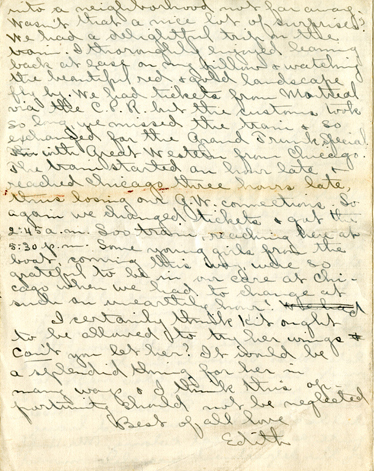 into a neighborhood not far away.
Wasn't that a nice lot of surprises?
We had a delightful trip on the
train. I thoroughly enjoyed leaning
back at ease on my pillow & watching
the beautiful red & gold landscape
fly by. We had tickets from Montreal
via the C.P.R. but the customs took
so long we missed the train & so
exchanged for the Grand Trunk special
with Great Western from Chicago.
The train started an hour late &
reached Chicago three hours late,
thus losing our G.W. connections. So
again we changed tickets & got the
2:45 a.m. Soo train reaching here at
5:30 p.m. Some young girls from the
boat coming this way were so
grateful to be in our care at Chi-
cago when we had to change at
such an unearthly hour.
I certainly think Kit ought
to be allowed to try her wings &
can't you let her? It would be
a splendid thing for her in
many ways & I think this op-
portunity should not be neglected
Best of all love
Edith